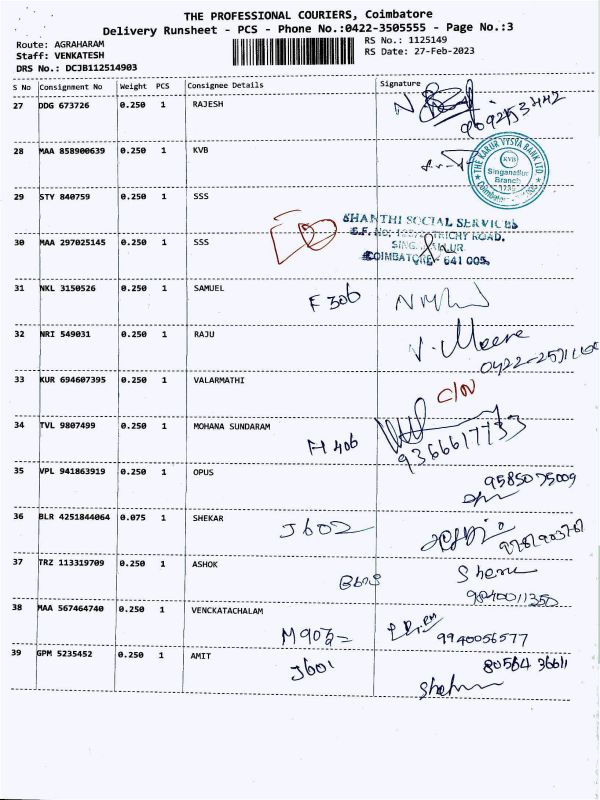 THE PROFESSIONAL COURIERS, Coimbatore
Delivery Runsheet - PCS - Phone No.:0422-3505555 - Page No.:3
Route: AGRAHARAM
RS No.: 1125149
Staff: VENKATESH
RS Date: 27-Feb-2023
DRS No.: DCJB112514903
S No Consignment No Weight PCS Consignee Details Signature
27 DDG 673726 0.250 1 RAJESH
28 MAA 858900639 0.250 1 KVB
THE KARUR VYSYA BANK LTD
KVB
Singanallur
Branch
29 STY 840759 0.250 1 SSS
SHANTHI SOCIAL SERVICES
TRICHY ROAD,
COIMBATORE - 641 005.
30 MAA 297025145 0.250 1 SSS
31 NKL 3150526 0.250 1 SAMUEL F 306
32 NRI 549031 0.250 1 RAJU
33 KUR 694607395 0.250 1 VALARMATHI
34 TVL 9807499 0.250 1 MOHANA SUNDARAM H 406
9366617733
35 VPL 941863919 0.250 1 OPUS 9585075009
36 BLR 4251844064 0.075 1 SHEKAR J602
37 TRZ 113319709 0.250 1 ASHOK
38 MAA 567464740 0.250 1 VENCKATACHALAM
9940056577
39 GPM 5235452 0.250 1 AMIT J601